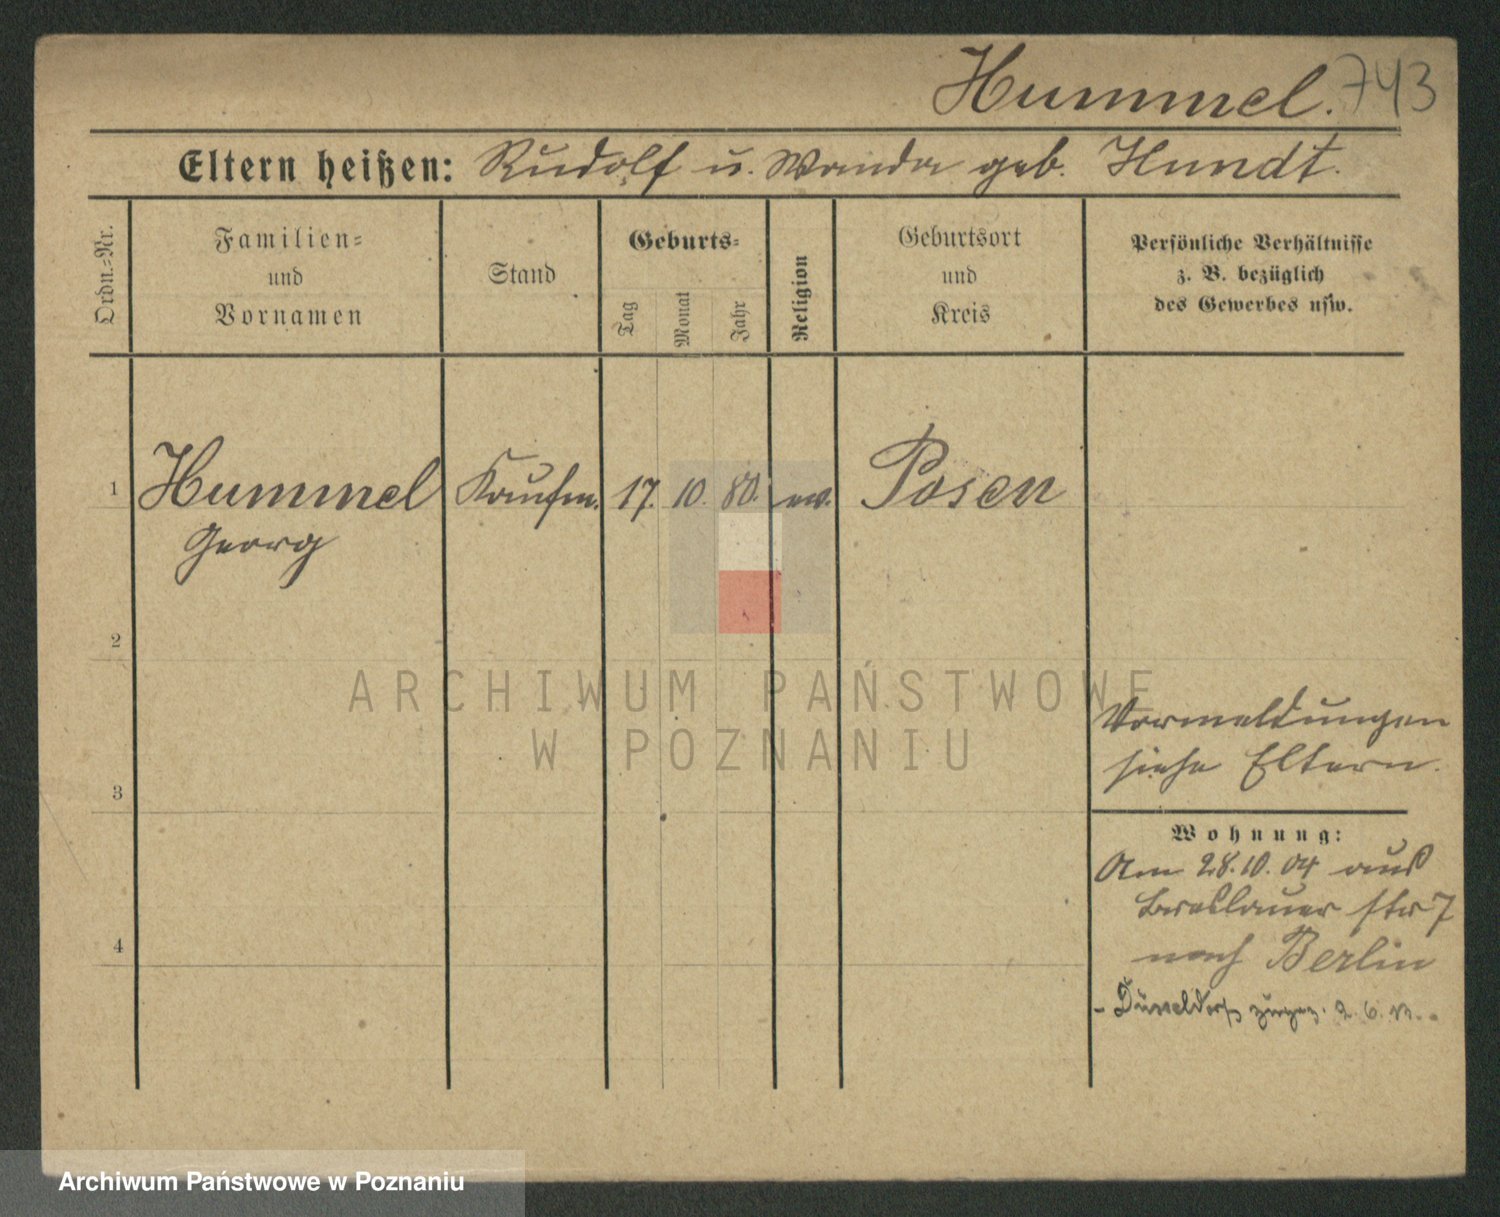 Hummel. 743
Eltern heißen: Rudolf u. Wanda geb. Hundt.
Ordn.-Nr.
Familien-
und
Vornamen
Stand
Geburts-
Tag
Monat
Jahr
Religion
Geburtsort
und
Kreis
Persönliche Verhältnisse
z. B. bezüglich
des Gewerbes usw.
1 Hummel Kaufm. 17. 10. 80. ev. Posen
Georg
2
3
4
Vormeldungen
siehe Eltern.
Wohnung:
Am 28.10.04 aus
Breslauer str 7
nach Berlin
- Düsseldorf zurgez. 2. 6.
ARCHIWUM PAŃSTWOWE
W POZNANIU
Archiwum Państwowe w Poznaniu